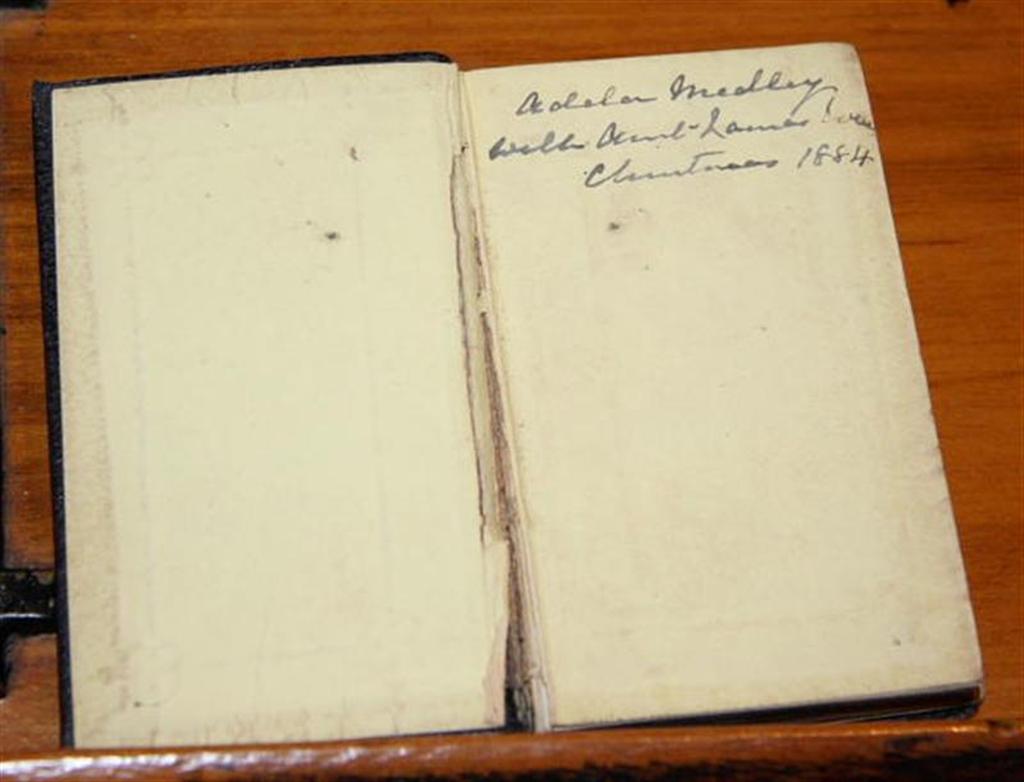 Adela Medley
with Aunt Louisa's love
Christmas 1884